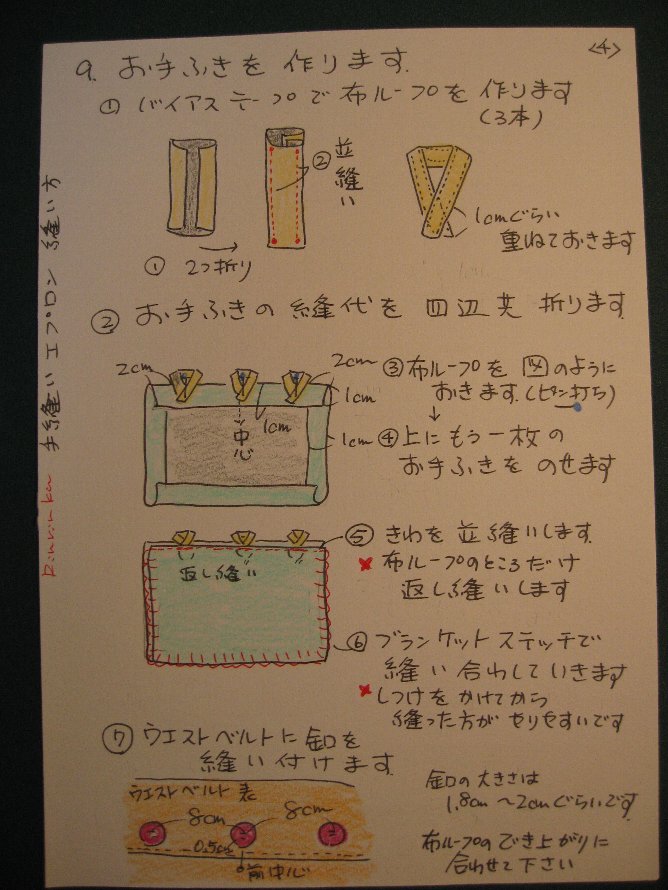 <4>
9. お手ふきを 作ります.
① バイアステープで布ループを 作ります
(3本)
② 並縫い
① 2つ折り
1cmぐらい
重ねておきます
手縫いエプロン 縫い方
② お手ふきの 縫代を 四辺共 折ります.
2cm
2cm
1cm
1cm
1cm
中心
③ 布ループを 図のように
おきます.(ピン打ち)
↓
④ 上にもう一枚の
お手ふきを のせます
返し縫い
⑤ きわを 並縫いします.
× 布ループのところだけ
返し縫いします
⑥ ブランケットステッチで
縫い合わしていきます
× しつけをかけてから
縫った方が やりやすいです
⑦ ウエストベルトに 釦を
縫い付けます.
ウエストベルト表
8cm
8cm
0.5cm
前中心
釦の大きさは
1.8cm～2cmぐらいです
布ループの でき上がりに
合わせて下さい